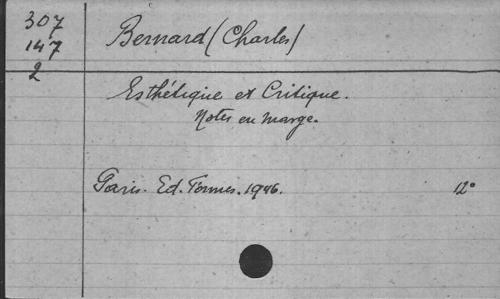 307
147
2
Bernard (Charles)
Esthétique et Critique.
Notes en marge.
Paris. Ed. Formes. 1946.
12°